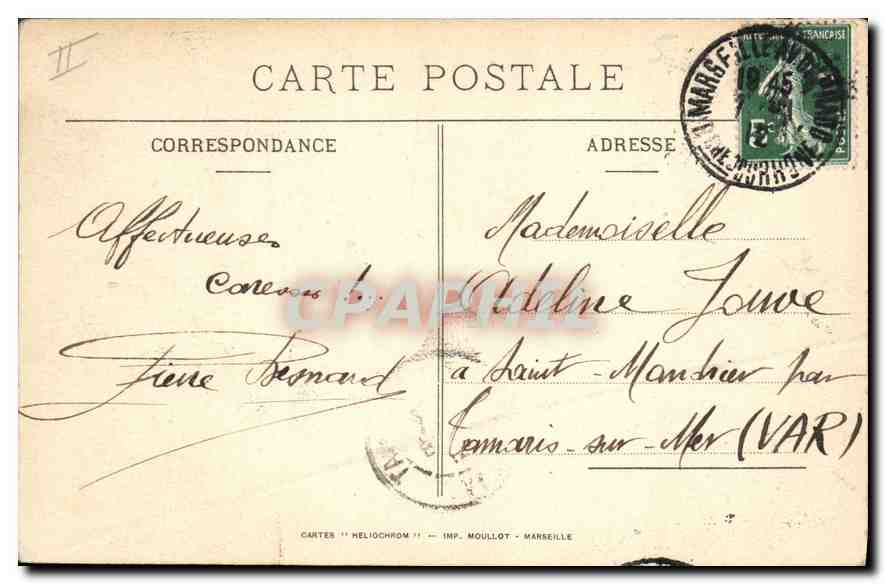 II
CARTE POSTALE
CORRESPONDANCE
ADRESSE
Affectueuses
caresses !..
Pierre Besnard
Mademoiselle
Adeline Jouve
à Saint-Mandrier par
Tamaris-sur-Mer (VAR)
CARTES "HELIOCHROM" — IMP. MOULLOT - MARSEILLE
FRANÇAISE
MARSEILLE
19 45
12
5
POSTES
TA
CPAPHIL